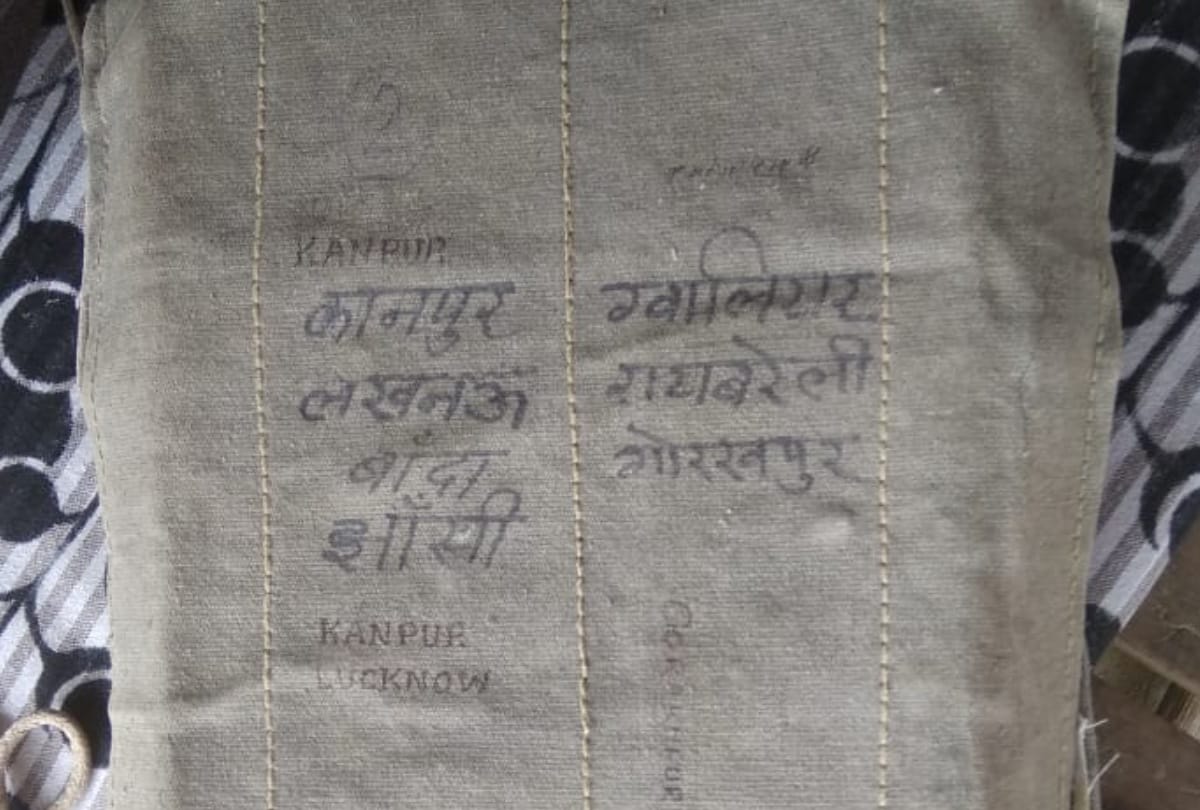 KANPUR
कानपुर
लखनऊ
बाँदा
झाँसी
KANPUR
LUCKNOW
ग्वालियर
रायबरेली
गोरखपुर
GORAKHPUR